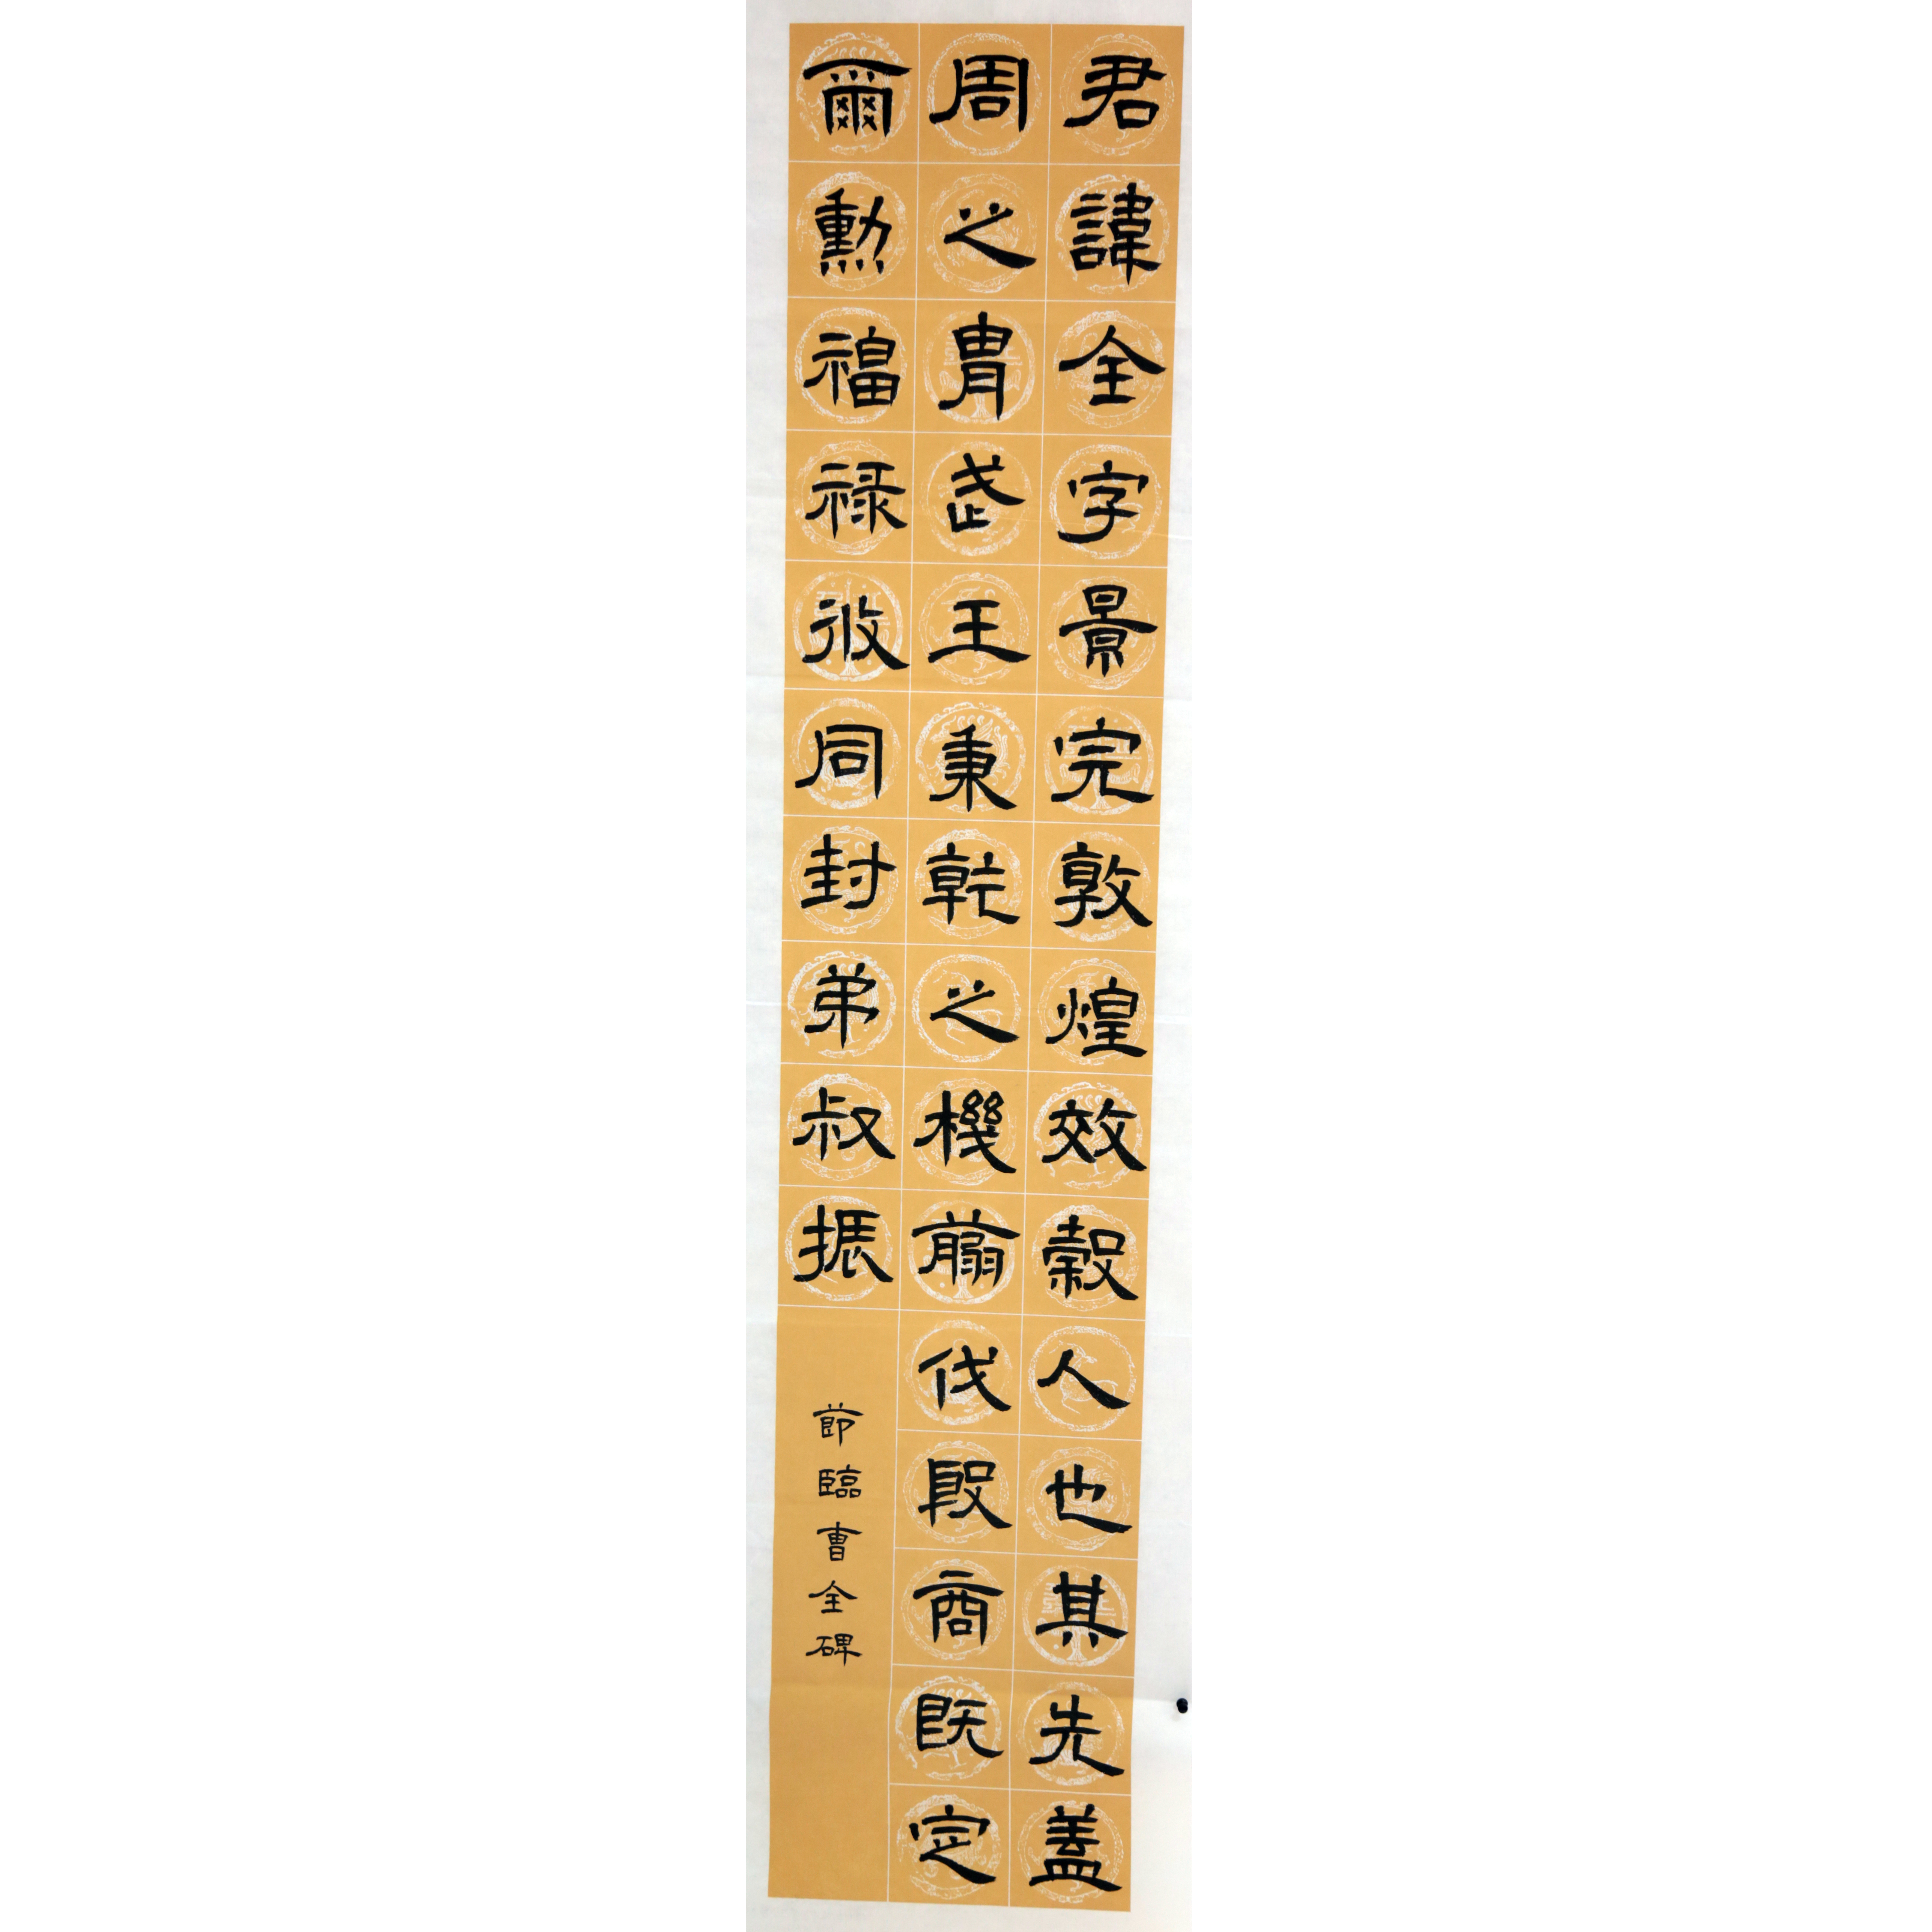 君諱全字景完敦煌效穀人也其先蓋
周之胄武王秉乾之機翦伐殷商既定
爾勳福祿攸同封弟叔振
節臨曹全碑